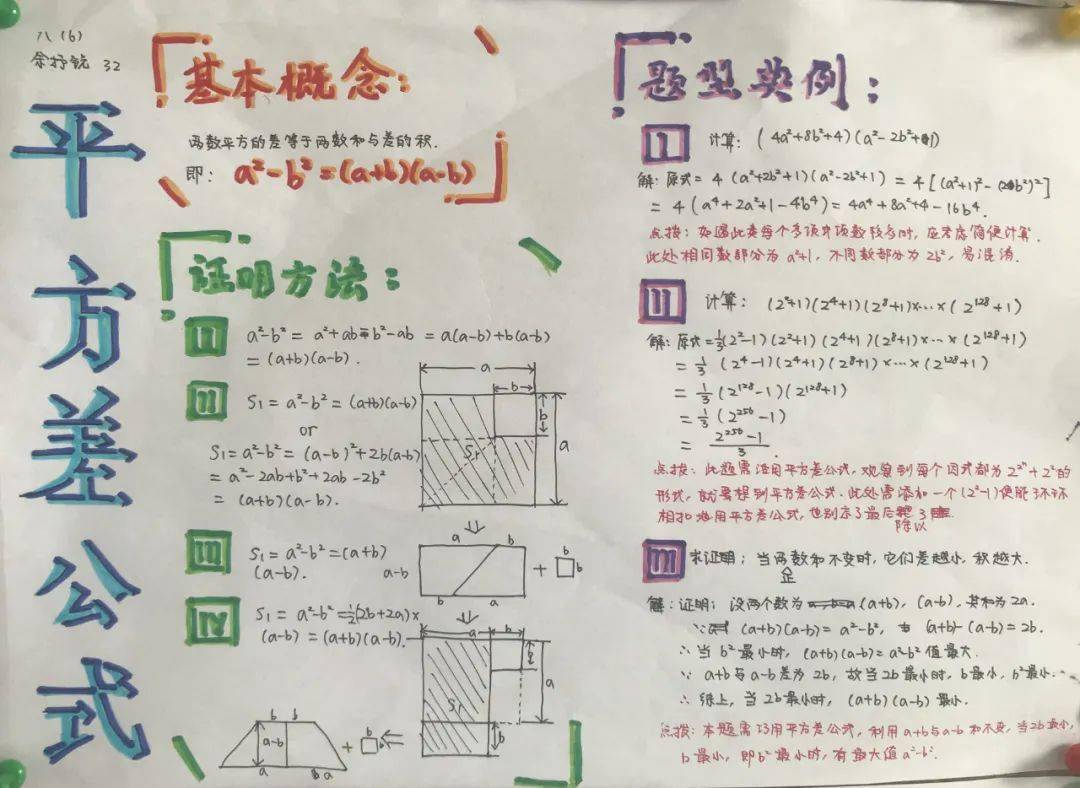 八(6)
余抒锐 32
平方差公式
基本概念：
两数平方的差等于两数和与差的积.
即： a²-b²=(a+b)(a-b)
证明方法：
I a²-b² = a²+ab-b²-ab = a(a-b)+b(a-b)
= (a+b)(a-b).
II S₁ = a²-b² = (a+b)(a-b)
or
S₁=a²-b² = (a-b)²+2b(a-b)
= a²-2ab+b²+2ab-2b²
= (a+b)(a-b).
a
b
b
a
S₁
III S₁ = a²-b² = (a+b)
(a-b).
a b
a-b
b a
+ b
b
IV S₁ = a²-b² = ½(2b+2a)×
(a-b) = (a+b)(a-b).
a b
b
a
S₁
b
b b
a-b
a b a
+ b
b
题型典例：
I 计算： (4a²+8b²+4)(a²-2b²+1)
解：原式= 4(a²+2b²+1)(a²-2b²+1) = 4[(a²+1)²-(2b²)²]
= 4(a⁴+2a²+1-4b⁴) = 4a⁴+8a²+4-16b⁴.
点拨：如遇此类每个多项中项数较多时，应考虑简便计算.
此处相同数部分为a²+1，不同数部分为2b²，易混淆.
II 计算： (2²+1)(2⁴+1)(2⁸+1)×…×(2¹²⁸+1)
解：原式=⅓(2²-1)(2²+1)(2⁴+1)(2⁸+1)×…×(2¹²⁸+1)
= ⅓(2⁴-1)(2⁴+1)(2⁸+1)×…×(2¹²⁸+1)
= ⅓(2¹²⁸-1)(2¹²⁸+1)
= ⅓(2²⁵⁶-1)
= (2²⁵⁶-1)/3.
点拨：此题需活用平方差公式，观察到每个因式都为
形式，就要想到平方差公式.此处需添加一个(2²-1)便能环环
相扣地用平方差公式，也别忘了最后除以3
III 求证明：当两数和不变时，它们差越小，积越大.
解：证明：设两个数为(a+b)，(a-b)，其和为2a.
∵ (a+b)(a-b)= a²-b²， (a+b)-(a-b)=2b.
∴ 当b²最小时，(a+b)(a-b)=a²-b²值最大.
∵ a+b与a-b差为2b，故当2b最小时，b最小，b²最小.
∴ 综上，当2b最小时，(a+b)(a-b)最小.
点拨：本题需巧用平方差公式，利用a+b与a-b和不变，当2b最小，
b最小，即b²最小时，有最大值a²-b².